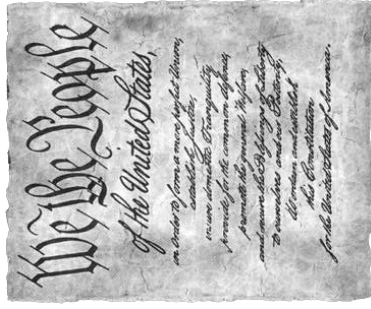 We the People
of the United States,
in order to form a more perfect Union,
establish Justice,
insure domestic Tranquility
provide for the common defence,
promote the general Welfare,
and secure the Blessings of Liberty
to ourselves and our Posterity,
and establish
this Constitution
for the United States of America.